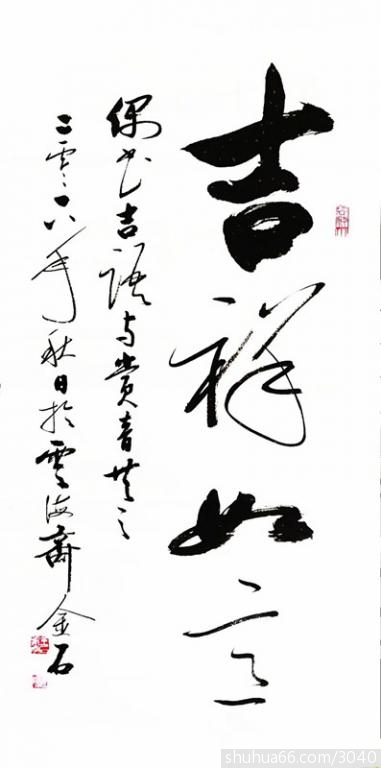 吉祥如意
偶书吉語与賞音共之
二零一八年秋日於雲海齋金石
shuhua66.com/3040